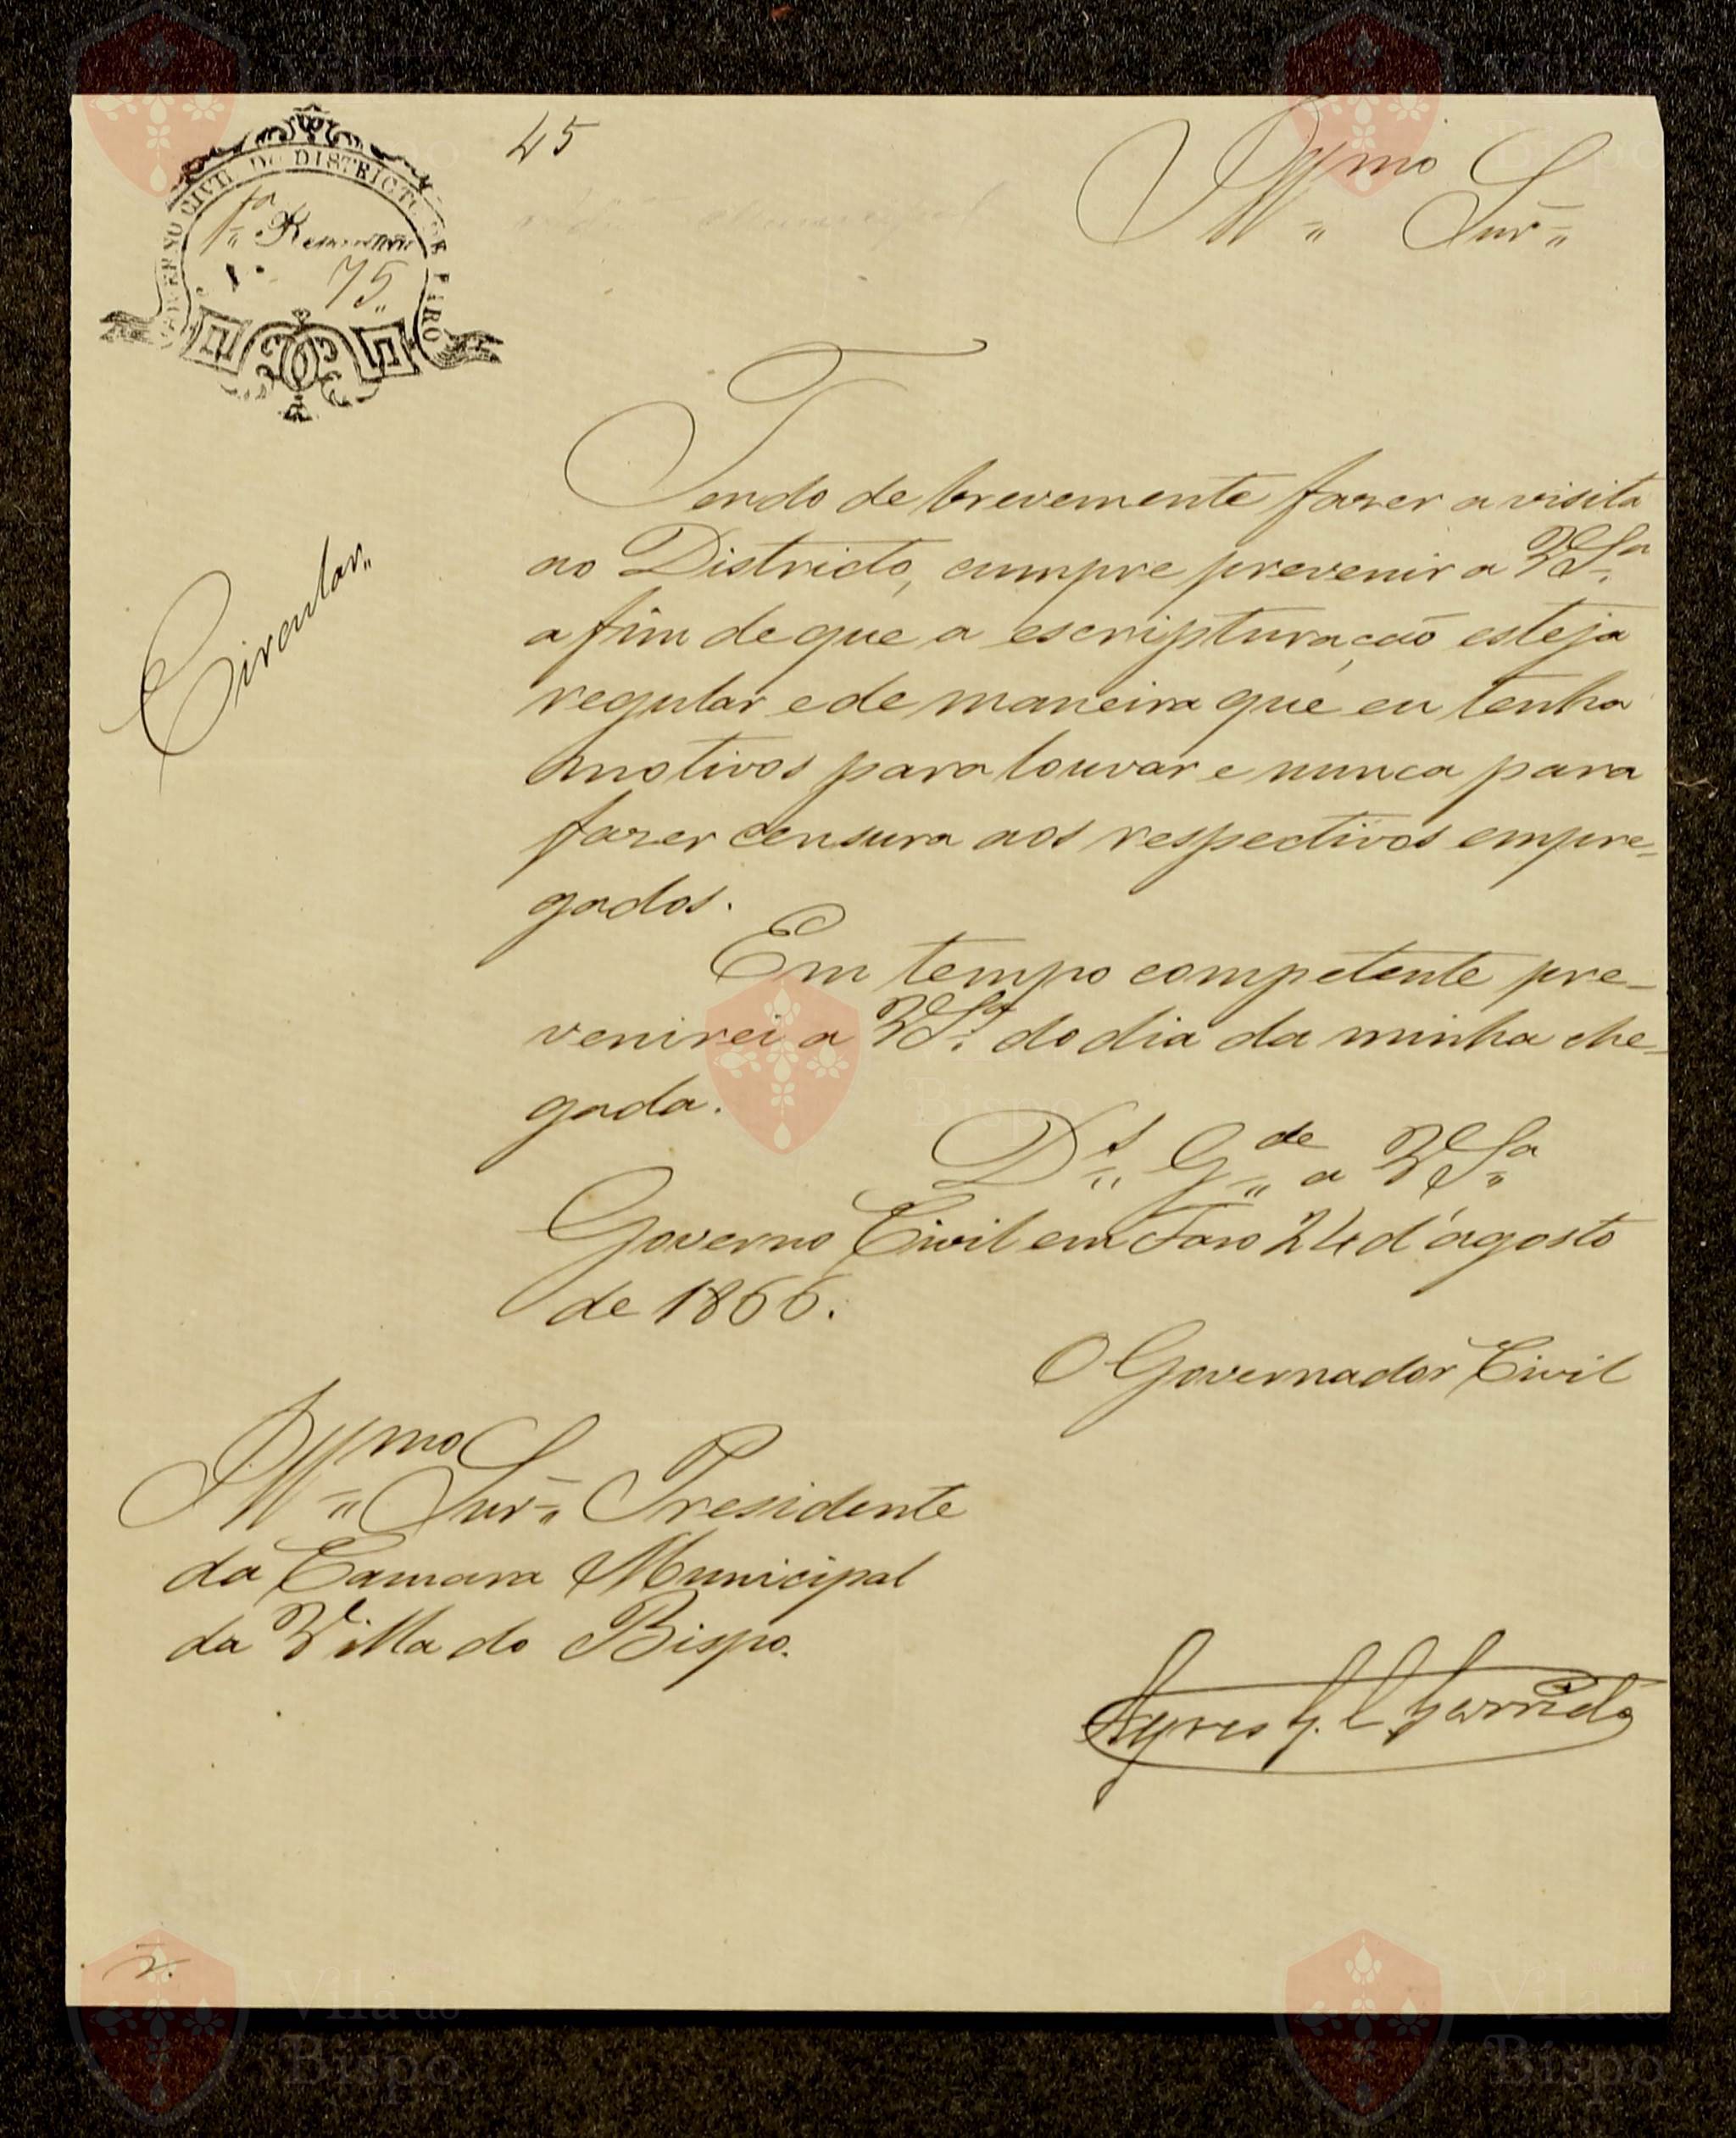 45
GOVERNO CIVIL DO DISTRICTO DE FARO
1ª Repartição
75
Illmo Snr
Circular
Tendo de brevemente fazer a visita
ao Districto, cumpre prevenir a V Sª
a fim de que a escripturação esteja
regular e de maneira que eu tenha
motivos para louvar e nunca para
fazer censura aos respectivos empre-
gados.
Em tempo competente pre-
venirei a V Sª do dia da minha che-
gada.
Ds Gde a V Sª
Governo Civil em Faro 24 d'agosto
de 1866.
O Governador Civil
Illmo Snr Presidente
da Camara Municipal
da Villa do Bispo.
Ayres G. C. Garrido
Vila do
Bispo
Vila do
Bispo